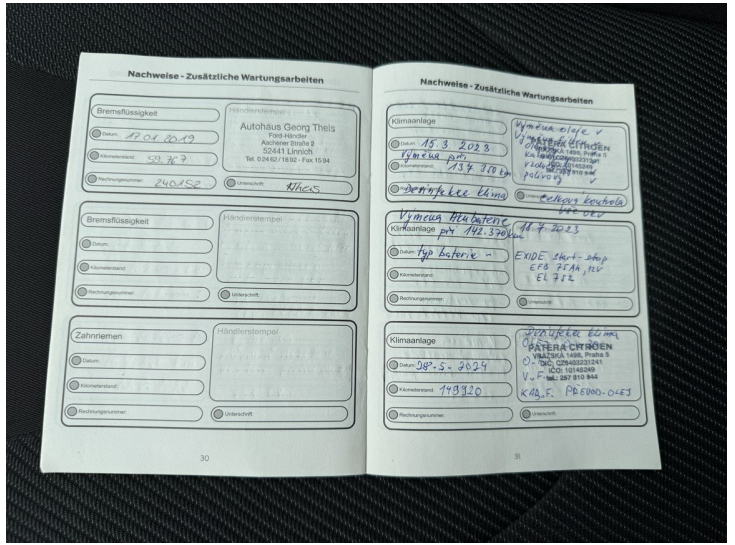 Nachweise - Zusätzliche Wartungsarbeiten
Bremsflüssigkeit
Händlerstempel
Datum: 17.01.2019
Kilometerstand: 59.767
Rechnungsnummer: 240152
Autohaus Georg Theis
Ford-Händler
Aachener Straße 2
52441 Linnich
Tel. 0 24 62 / 18 92 - Fax 15 94
Unterschrift: Theis
Bremsflüssigkeit
Händlerstempel
Datum:
Kilometerstand:
Rechnungsnummer:
Unterschrift:
Zahnriemen
Händlerstempel
Datum:
Kilometerstand:
Rechnungsnummer:
Unterschrift:
30
Nachweise - Zusätzliche Wartungsarbeiten
Klimaanlage
Datum: 15.3.2023
výměna při
137.350 km
Desinfekce klima
Výměna oleje
PATERA CITROEN
VRÁŽSKA 1498, Praha 5
DIČ: CZ6403231241
IČO: 10145249
tel.: 257 810 944
palivový
celková kontrola
Výměna Akubaterie
Klimaanlage při 142.370 km 18.7.2023
Datum: typ baterie -
Kilometerstand:
Rechnungsnummer:
EXIDE start-stop
EFB 75Ah, 12V
EL 752
Unterschrift:
Klimaanlage
Datum: 28.5.2024
Kilometerstand: 149920
Rechnungsnummer:
Desinfekce klima
PATERA CITROEN
VRÁŽSKA 1498, Praha 5
DIČ: CZ6403231241
IČO: 10145249
tel.: 257 810 944
KAB.F. PŘEVOD-OLEJ
Unterschrift:
31